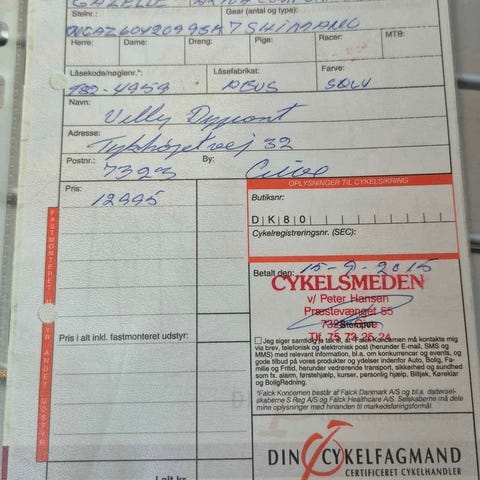 GAZELLE
Stelnr.: Gear (antal og type):
7 SHIMANO
Herre: Dame: Dreng: Pige: Racer: MTB:
Låsekode/nøglenr.*: Låsefabrikat: Farve:
ABUS SØLV
Navn:
Villy Dupont
Adresse:
32
Postnr.: By:
7323 Give
Pris:
12995
OPLYSNINGER TIL CYKELSIKRING
Butiksnr:
DK80
Cykelregistreringsnr. (SEC):
FASTMONTERET
ANDET UDSTYR
Betalt den: 15-9-2015
CYKELSMEDEN
v/ Peter Hansen
Præstevænget 55
Tlf. 75 73 25 24
Pris i alt inkl. fastmonteret udstyr:
Jeg giver samtidig
Falck Koncernen må kontakte mig
via brev, telefonisk og elektronisk post (herunder E-mail, SMS og
MMS) med relevant information, bl.a. om konkurrencer og events, og
gode tilbud på vores produkter og ydelser indenfor Auto, Bolig, Fa-
milie og Fritid, herunder vedrørende transport, sikkerhed og sundhed
som fx. alarm, førstehjælp, kurser, personlig hjælp, Biltjek, Køreklar
og BoligRedning.
*Falck Koncernen består af Falck Danmark A/S og bl.a. dattersel-
skaberne S Reg A/S og Falck Healthcare A/S. Selskaberne må dele
mine oplysninger med hinanden til markedsføringsformål.
I alt kr.
DIN CYKELFAGMAND
CERTIFICERET CYKELHANDLER